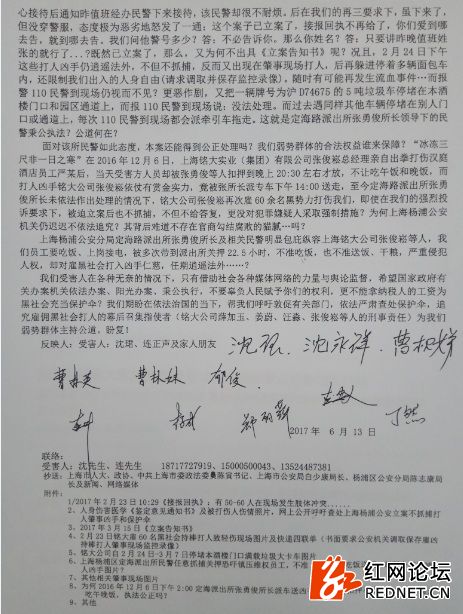 心接待后通知昨值班经办民警下来接待,该民警却很不耐烦。后在我们的再三要求下,虽下来了,
但没穿警服,态度极为恶劣地怒发了一通:这个案子已立案了,接报回执不再给了,你们爱到哪
去告,就到哪去告。我们问他警号多少?答:不必告诉你。那么你姓名?答:只要讲昨晚值班姓
张的就行了...?既然已立案了,那么,又为何不出具《立案告知书》呢?况且,2月24日下午
这些打人凶手仍逍遥法外,不但不抓捕,反而又出现在肇事现场打人,后再躲进停着多辆面包车
内,还限制我们出入的人身自由(请求调取并保存监控录像),随时有可能再发生流血事件…而报
警110民警到现场仍视而不见?更恶作剧,又把一辆牌号为沪D74675的5吨垃圾车停堵在本酒
楼门口和园区通道上,而报110民警到现场说:没法处理。而过去遇同样其他车辆停堵在别人门
口或通道上,每次110民警到现场都会派牵引车拖走。这就是定海路派出所张勇俊所长领导下的民
警秉公执法?公道何在?
面对该所民警如此态度,本案还能得到公正处理吗?我们弱势群体的合法权益谁来保障?“冰冻三
尺非一日之寒”在2016年12月6日,上海铭大实业(集团)有限公司张俊崧总经理亲自出拳打伤汉庭
酒店员工严某后,当天受害方人员却被张勇俊等人扣押到晚上20:30左右才放,不让吃午饭和晚饭,而
打人凶手铭大公司张俊崧依仗有赏金实力,竟被张所长派专车下午14:00送走,至今定海路派出所张勇
俊所长未依法作出处理的情况下,铭大公司张俊崧再次雇60余名黑势力打伤我们,即使在我们的强烈投
诉要求下,被迫立案后也不抓捕,不但不给答复,更没对犯罪嫌疑人采取强制措施?为何上海杨浦公安
机关仍迟迟不依法追究?其背后难道不存在官商勾结腐败的猫腻…吗?
上海杨浦公安分局定海路派出所张勇俊所长及相关民警明显包庇纵容上海铭大公司张俊崧等人,我
们员工要吃饭、上岗接电,被多次带到派出所关押22.5小时,不准吃饭,也不准送饭、干粮,严重侵犯
人权,却对雇黑社会打人凶手仁慈,任期逍遥法外……?
我们受害人在各种无奈的情况下,只有借助社会各种媒体网络的力量与舆论监督,希望国家政府有
关办案机关依法办案、阳光办案,秉公执行,不要辜负人民赋予你们的权利,更不能拿纳税人的工资为
黑社会充当保护伞?我们期盼在依法治国的当下,帮我们呼吁敦促有关部门,依法严肃查处保护伞,追
究雇佣黑社会打人的幕后召集指使者(铭大公司薛加玉、姜蔚、汪淼、张俊崧等人的刑事责任)为我们
弱势群体主持公道,盼复!
反映人:受害人:沈珺、连正声及家人朋友
沈强、沈永祥、
郁俊
丁然
2017 年 6 月 13 日
联络:
受害人:沈先生、连先生 18717727919、15000500043、13524487381
抄送:上海市人大、政协、中共上海市委政法委员陈寅书记、上海市公安局白少康局长、杨浦区公安分局陈志康局
长及新闻、网络媒体
附件:
1/2017年2月23日10:29《接报回执》:有50-60人在现场发生肢体冲突……
2、人身伤害医学《鉴定意见通知书》及被打伤人伤情照片,网上公开呼吁查处上海杨浦公安立案不抓捕打
人肇事凶手和保护伞
3、2017年3月15日《立案告知书》
4、2月23日铭大雇60名黑社会持棒打人致轻伤现场图片及快递四联单(书面要求公安机关调取保存雇凶
持棒打人肇事现场监控录像)
5、铭大公司自2月24日-3月7日停堵本酒楼门口满载垃圾大卡车图片
6、上海杨浦区定海派出所民警任意抓捕关押恐吓镇压维权员工,不准
人凶手图片?
7、其他相关肇事现场图片
8、为何2016年12月6日下午2:00定海派出所张勇俊所长派专车送
吃午晚饭,执法公正吗?
9、其他
红网论坛
REDNET.CN